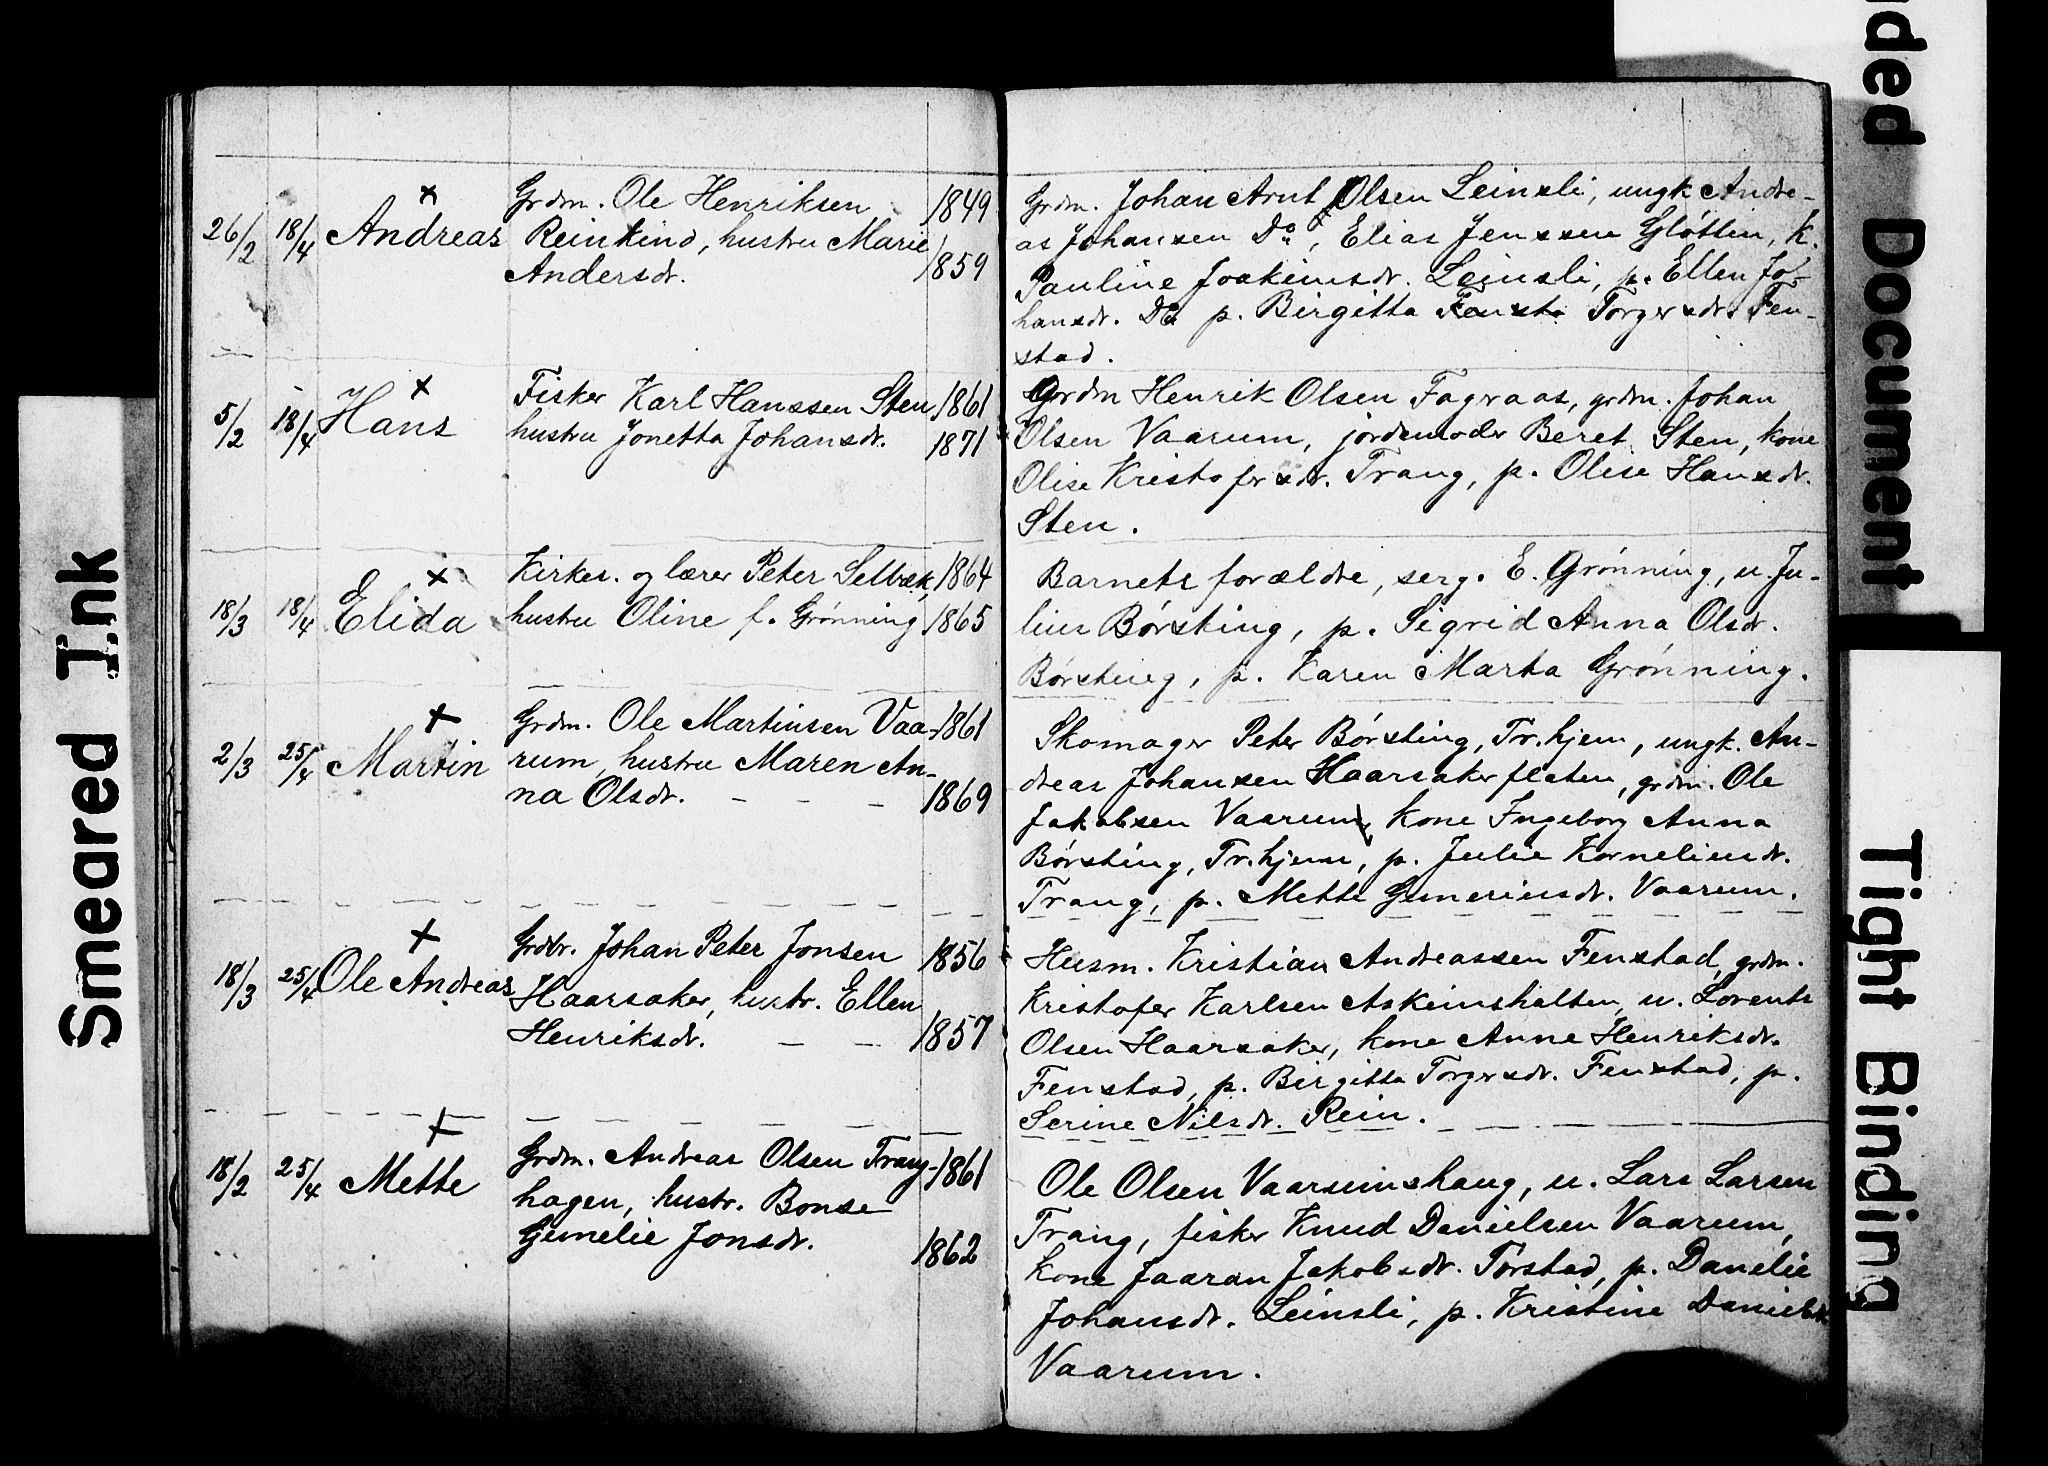 26/2 18/4 Andreas
Grdm. Ole Henriksen 1849
Reinkind, hustru Marie
Andersdr. 1859
Grdm. Johan Arnt Olsen Leinsli, ungk Andre-
as Johansen Do, Elias Jenssen Gløtlien, k.
Pauline Joakimsdr. Leinsli, p. Ellen Jo-
hansdr. Do p. Birgitta Torgersdr. Fen-
stad.
5/2 18/4 Hans
Fisker Karl Hanssen Sten, 1861
hustru Jonetta Johansdr. 1871
Gordm Henrik Olsen Fagraas, grdm. Johan
Olsen Vaarum, jordemoder Beret Sten, kone
Olise Kristofersdr. Trang, p. Olise Hansdr.
Sten.
18/3 18/4 Elida
Kirkes. og lærer Peter Selbæk, 1864
hustru Oline f. Grønning 1865
Barnets forældre, serg. E. Grønning, u. Ju-
lius Børsting, p. Sigrid Anna Olsdr.
Børsting, p. Karen Marta Grønning.
2/3 25/4 Martin
Grdm. Ole Martinsen Vaa- 1861
rum, hustru Maren An-
na Olsdr. - - - 1869
Skomager Peter Børsting, Tr.hjem, ungk. An-
dreas Johansen Haarsakerflaten, grdm. Ole
Jakobsen Vaarum, kone Ingeborg Anna
Børsting, Tr.hjem, p. Julie Korneliusdr.
Trang, p. Mette Guneriusdr. Vaarum.
18/3 25/4 Ole Andreas
Grdbr. Johan Peter Jonsen 1856
Haarsaker, hustr. Ellen
Henriksdr. - - 1857
Husm. Kristian Andreassen Fenstad, grdm.
Kristofer Karlsen Askeimshalten, u. Lorents
Olsen Haarsaker, kone Anne Henriksdr.
Fenstad, p. Birgitta Torgersdr. Fenstad, p.
Serine Nilsdr. Rein.
18/2 25/4 Mette
Grdm. Andreas Olsen Trang- 1861
hagen, hustr. Bonse
Gunelie Jonsdr. 1862
Ole Olsen Vaarumshaug, u. Lars Larsen
Trang, fisker Knud Danielsen Vaarum,
kone Jaaran Jakobsdr. Tørstad, p. Danelie
Johansdr. Leinsli, p. Kristine Danielsdr.
Vaarum.
Smeared Ink
nded Document
Tight Binding